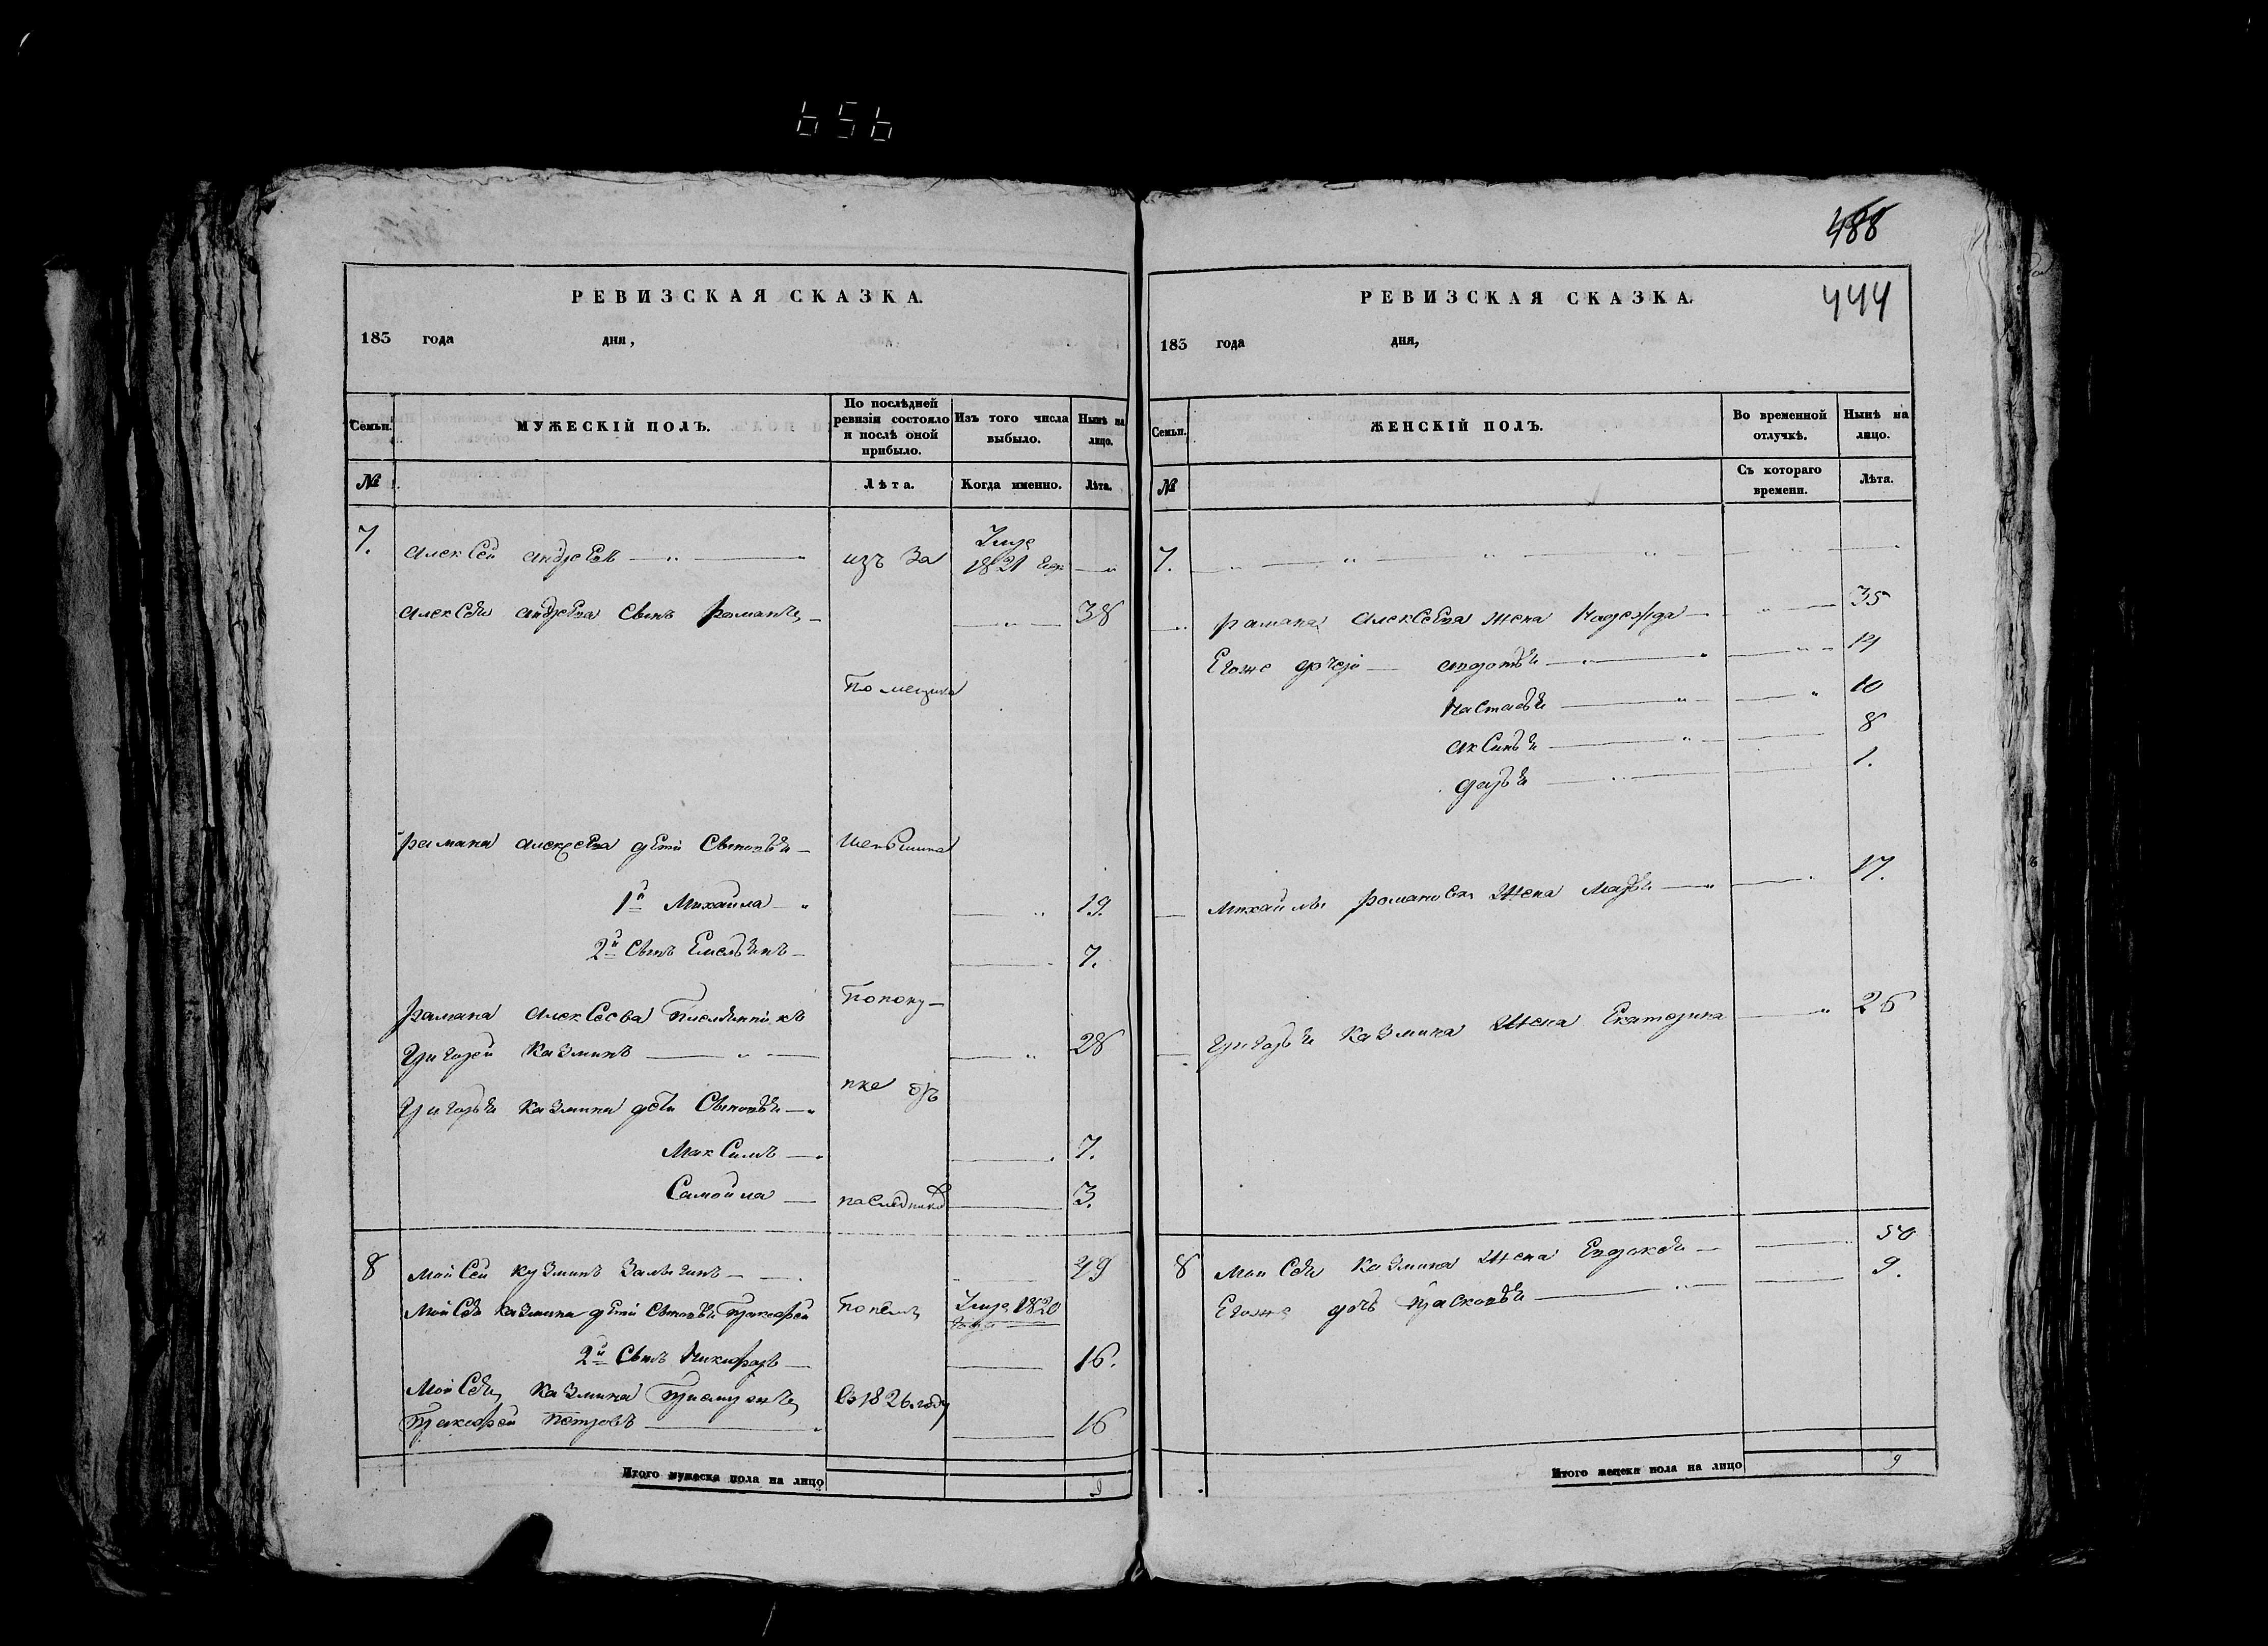 656
РЕВИЗСКАЯ СКАЗКА.
183 года дня,
Семьи. МУЖЕСКІЙ ПОЛЪ. По послѣдней ревизіи состояло и послѣ оной прибыло. Изъ того числа выбыло. Нынѣ на лицо.
№ Лѣта. Когда именно. Лѣта.
7. Алексей Андреевъ изъ За 1821
Алексѣя Андреева сынъ Раманъ 38
Помещика
Рамана Алексеева дети Сыновья
1й Михайла 19.
2й сынъ Емельянъ 7.
Рамана Алексеева Племянникъ Попоку-
Григорей Казминъ 28
Григорья Казмина дети Сыновья пке
Максимъ 7.
Самойла 3.
8 Мойсей Кузминъ 49
Мойсея Казмина дети Сыновья 1820
2й Сынъ Никифоръ 16.
Мойсея Казмина Въ 1826 году
Петровъ 16
Итого мужеска пола на лицо 9
488
444
РЕВИЗСКАЯ СКАЗКА.
183 года дня,
Семьи. ЖЕНСКІЙ ПОЛЪ. Во временной отлучкѣ. Нынѣ на лицо.
№ Съ котораго времени. Лѣта.
7.
Рамана Алексеева жена Надежда 35
Егоже дочери 14
Настасья 10
Аксинья 8
Дарья 1.
Михайлы Романова Жена Марья 17.
Григорья Казмина Жена Екатерина 26
8 Мойсея Казмина Жена Евдокея 50
Егоже дочь Прасковья 9.
Итого женска пола на лицо 9